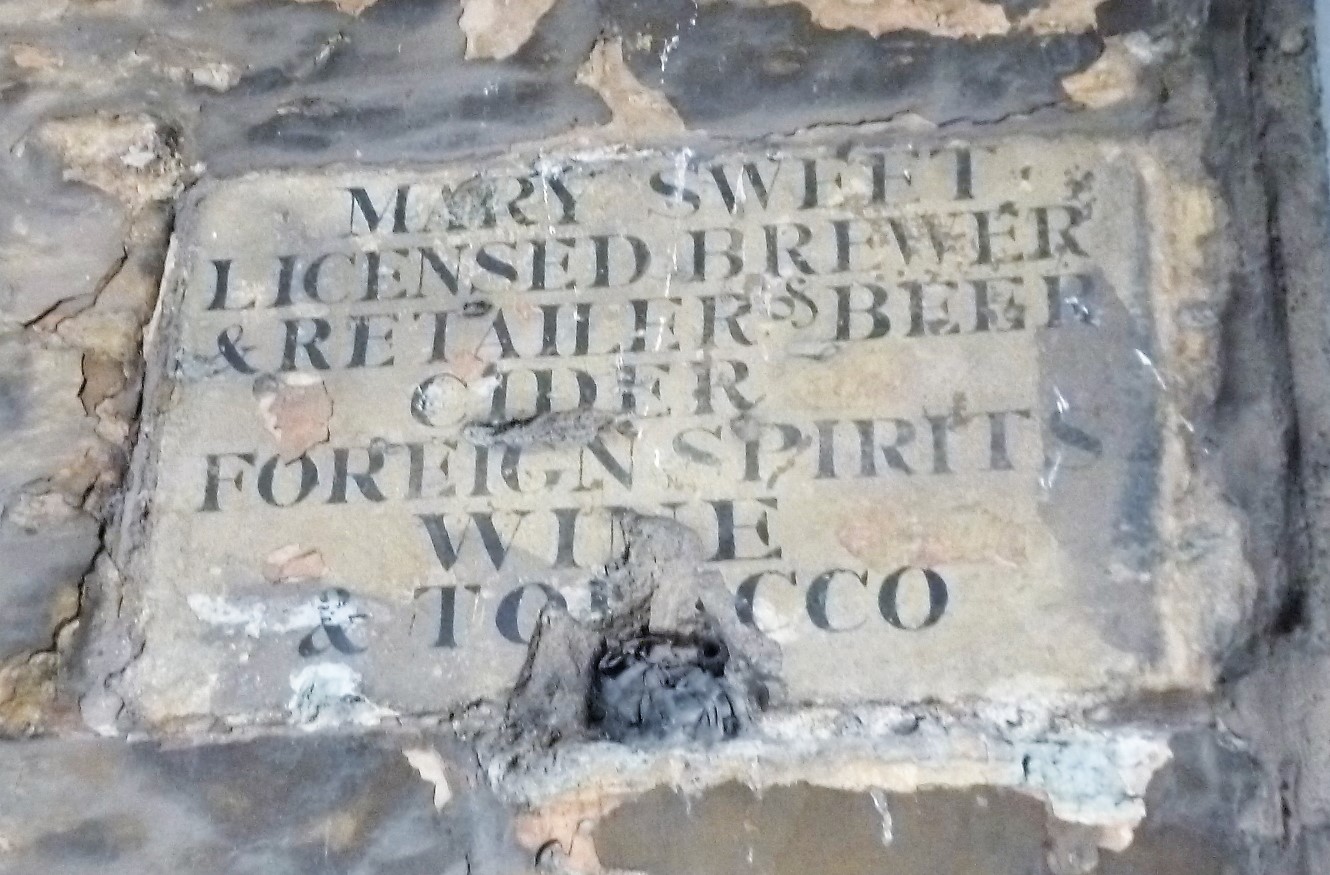 MARY SWEET
LICENSED BREWER
& RETAILER OF BEER
CIDER
FOREIGN SPIRITS
WINE
& TOBACCO